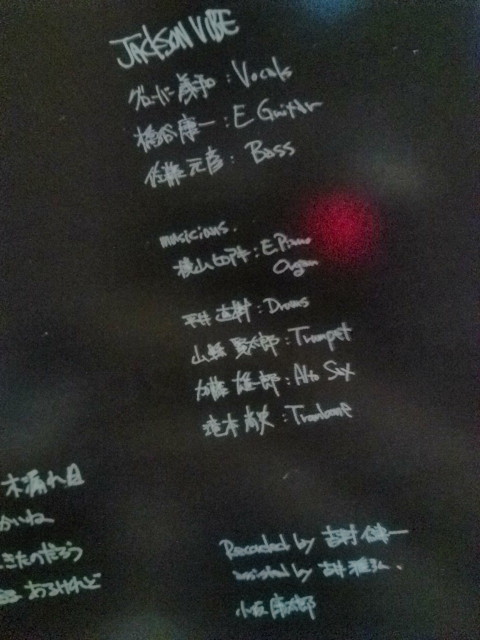 JACKSON VIBE
グローバー義和 : Vocals
橋谷康一 : E.Guitar
佐藤元彦 : Bass
musicians.
横山ヒロアキ : E.Piano
Organ
平井直樹 : Drums
山 賢太郎 : Trumpet
加藤雄一郎 : Alto Sax
滝木尚史 : Trombone
木漏れ日
かいね
きたのだろう
あるけれど
Recorded by 吉村健一
assisted by
小 太郎